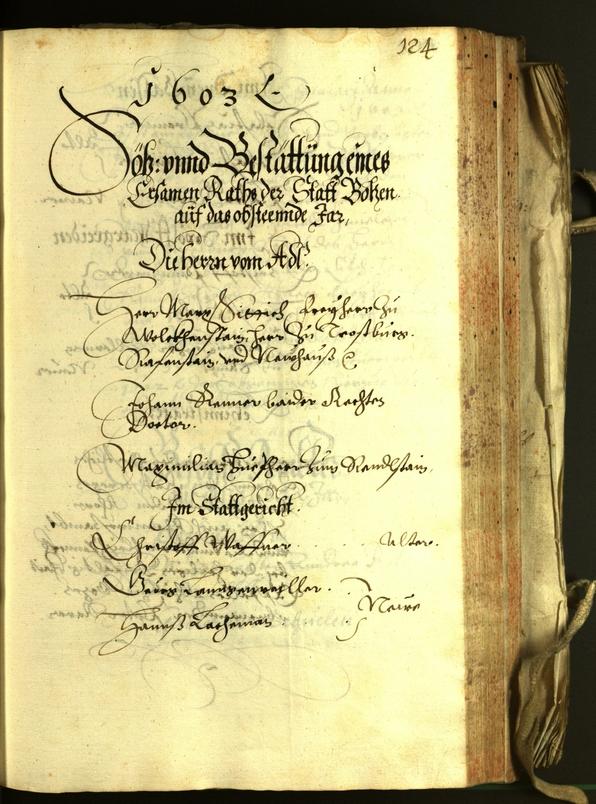 124
1603
Söz: vnnd Bestättung eines
Ersamen Raths der Statt Bozen
auf das obsteennde Jar,
Die herrn vom Adl.
Herr Marx Sittich freyherr zu
Wolckhenstain, herr zu Trostburg.
Rafenstain, vnd Newhauß
Johann Renner baider Rechten
Doctor.
Maximilian Hueffherr zum Rendlstain.
Im Stattgericht.
Christoff Waffner . . . alter.
Georg
Hannß Lacheman
Newe